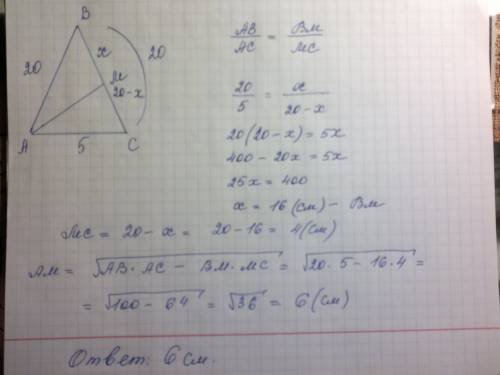 B
20
x
20
M
20-x
A
5
C
AB/AC = BM/MC
20/5 = x/(20-x)
20(20-x) = 5x
400 - 20x = 5x
25x = 400
x = 16 (см) - BM
MC = 20 - x = 20 - 16 = 4 (см)
AM = √(AB · AC - BM · MC) = √(20 · 5 - 16 · 4) =
= √(100 - 64) = √36 = 6 (см)
Ответ: 6 см.